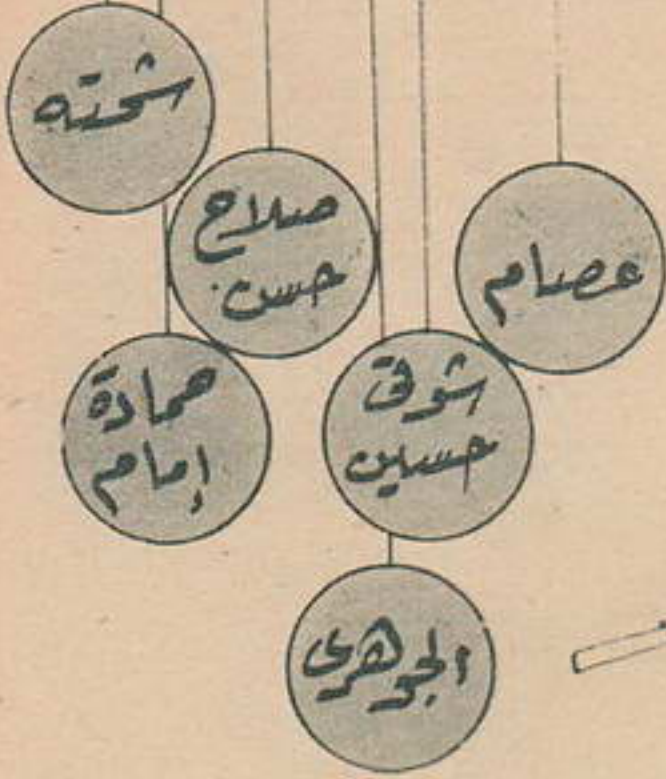 شحته
صلاح
حسن
عصام
حمادة
إمام
شوقى
حسين
الجوهرى